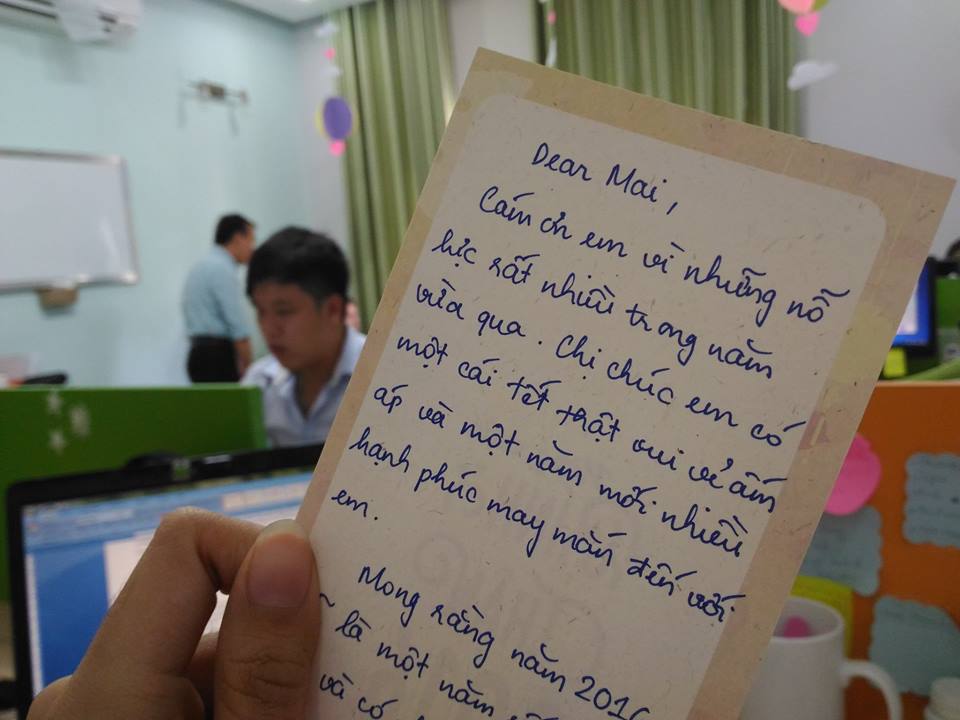 Dear Mai,
Cám ơn em vì những nỗ
lực rất nhiều trong năm
vừa qua. Chị chúc em có
một cái tết thật vui vẻ ấm
áp và một năm mới nhiều
hạnh phúc may mắn đến với
em.
Mong rằng năm 201
là một năm
và có